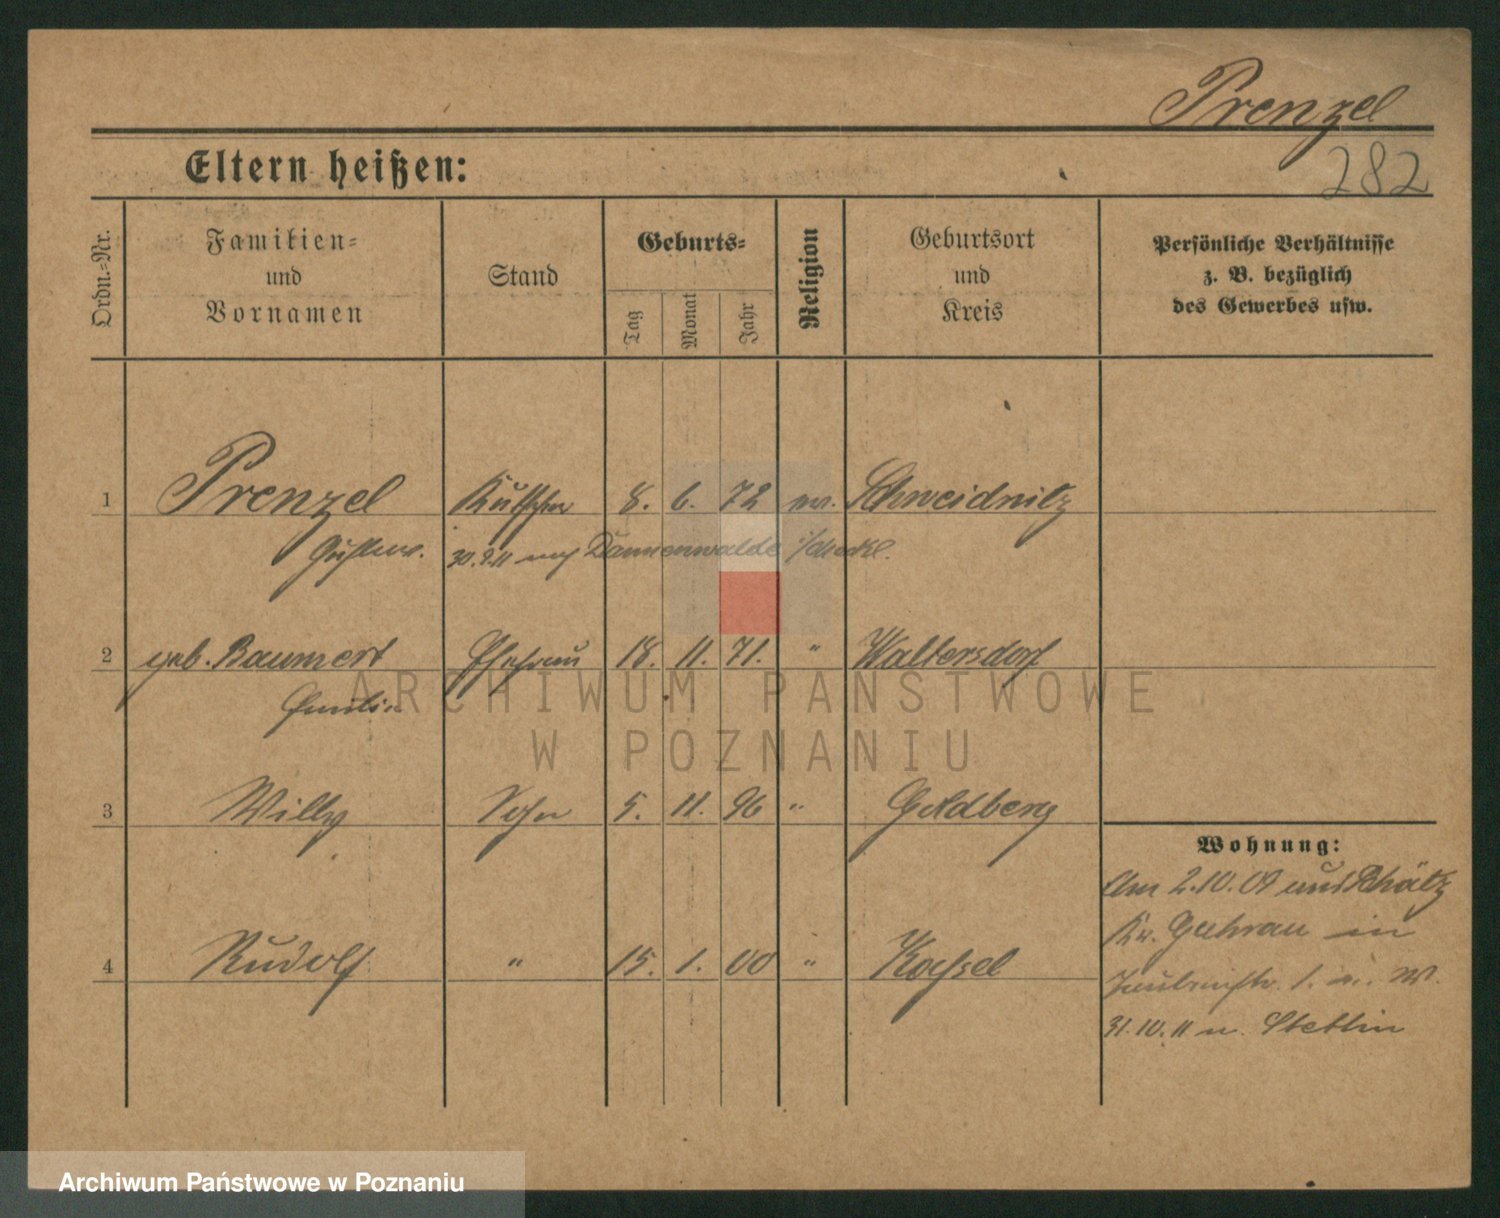 Prenzel
282
Eltern heißen:
Ordn.=Nr.
Familien=
und
Vornamen
Stand
Geburts=
Tag
Monat
Jahr
Religion
Geburtsort
und
Kreis
Persönliche Verhältnisse
z. B. bezüglich
des Gewerbes usw.
1 Prenzel Kutscher 8. 6. 72 ev. Schweidnitz
Gustav. 30.9.11 nach Dannenwalde
2 geb. Baumert Ehefrau 18. 11. 71. " Waltersdorf
Emilie
3 Willy Sohn 5. 11. 96 " Goldberg
4 Rudolf " 15. 1. 00 "
Wohnung:
Am 2.10.09 aus
Kr. Guhrau in
1.
31.10.11 n. Stettin
ARCHIWUM PAŃSTWOWE
W POZNANIU
Archiwum Państwowe w Poznaniu